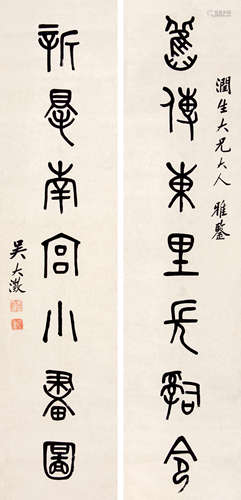 潤生大兄大人 雅鑒
舊傳東里長辭令
新得南宮小畫圖
吳大澂